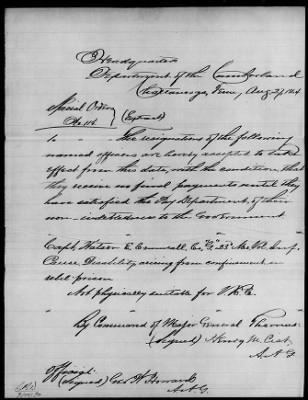 Headquarters
Department of the Cumberland
Chattanooga, Tenn, Aug 2/64
Special Orders
No. 114. (Extract)
The resignations of the following
named officers are hereby accepted to take
effect from this date, with the condition that
they receive no final payments until they
have satisfied the Pay Department, of their
non-indebtedness to the Government
Capt. Watson E. Co. Inf.
Cause Disability arising from confinement in
rebel prison
Not physically suitable for
By Command of Major General Thomas
(Signed) Henry M. Cist
A.A.G
Official:
(Signed) Geo. W. Howard
A.A.G.